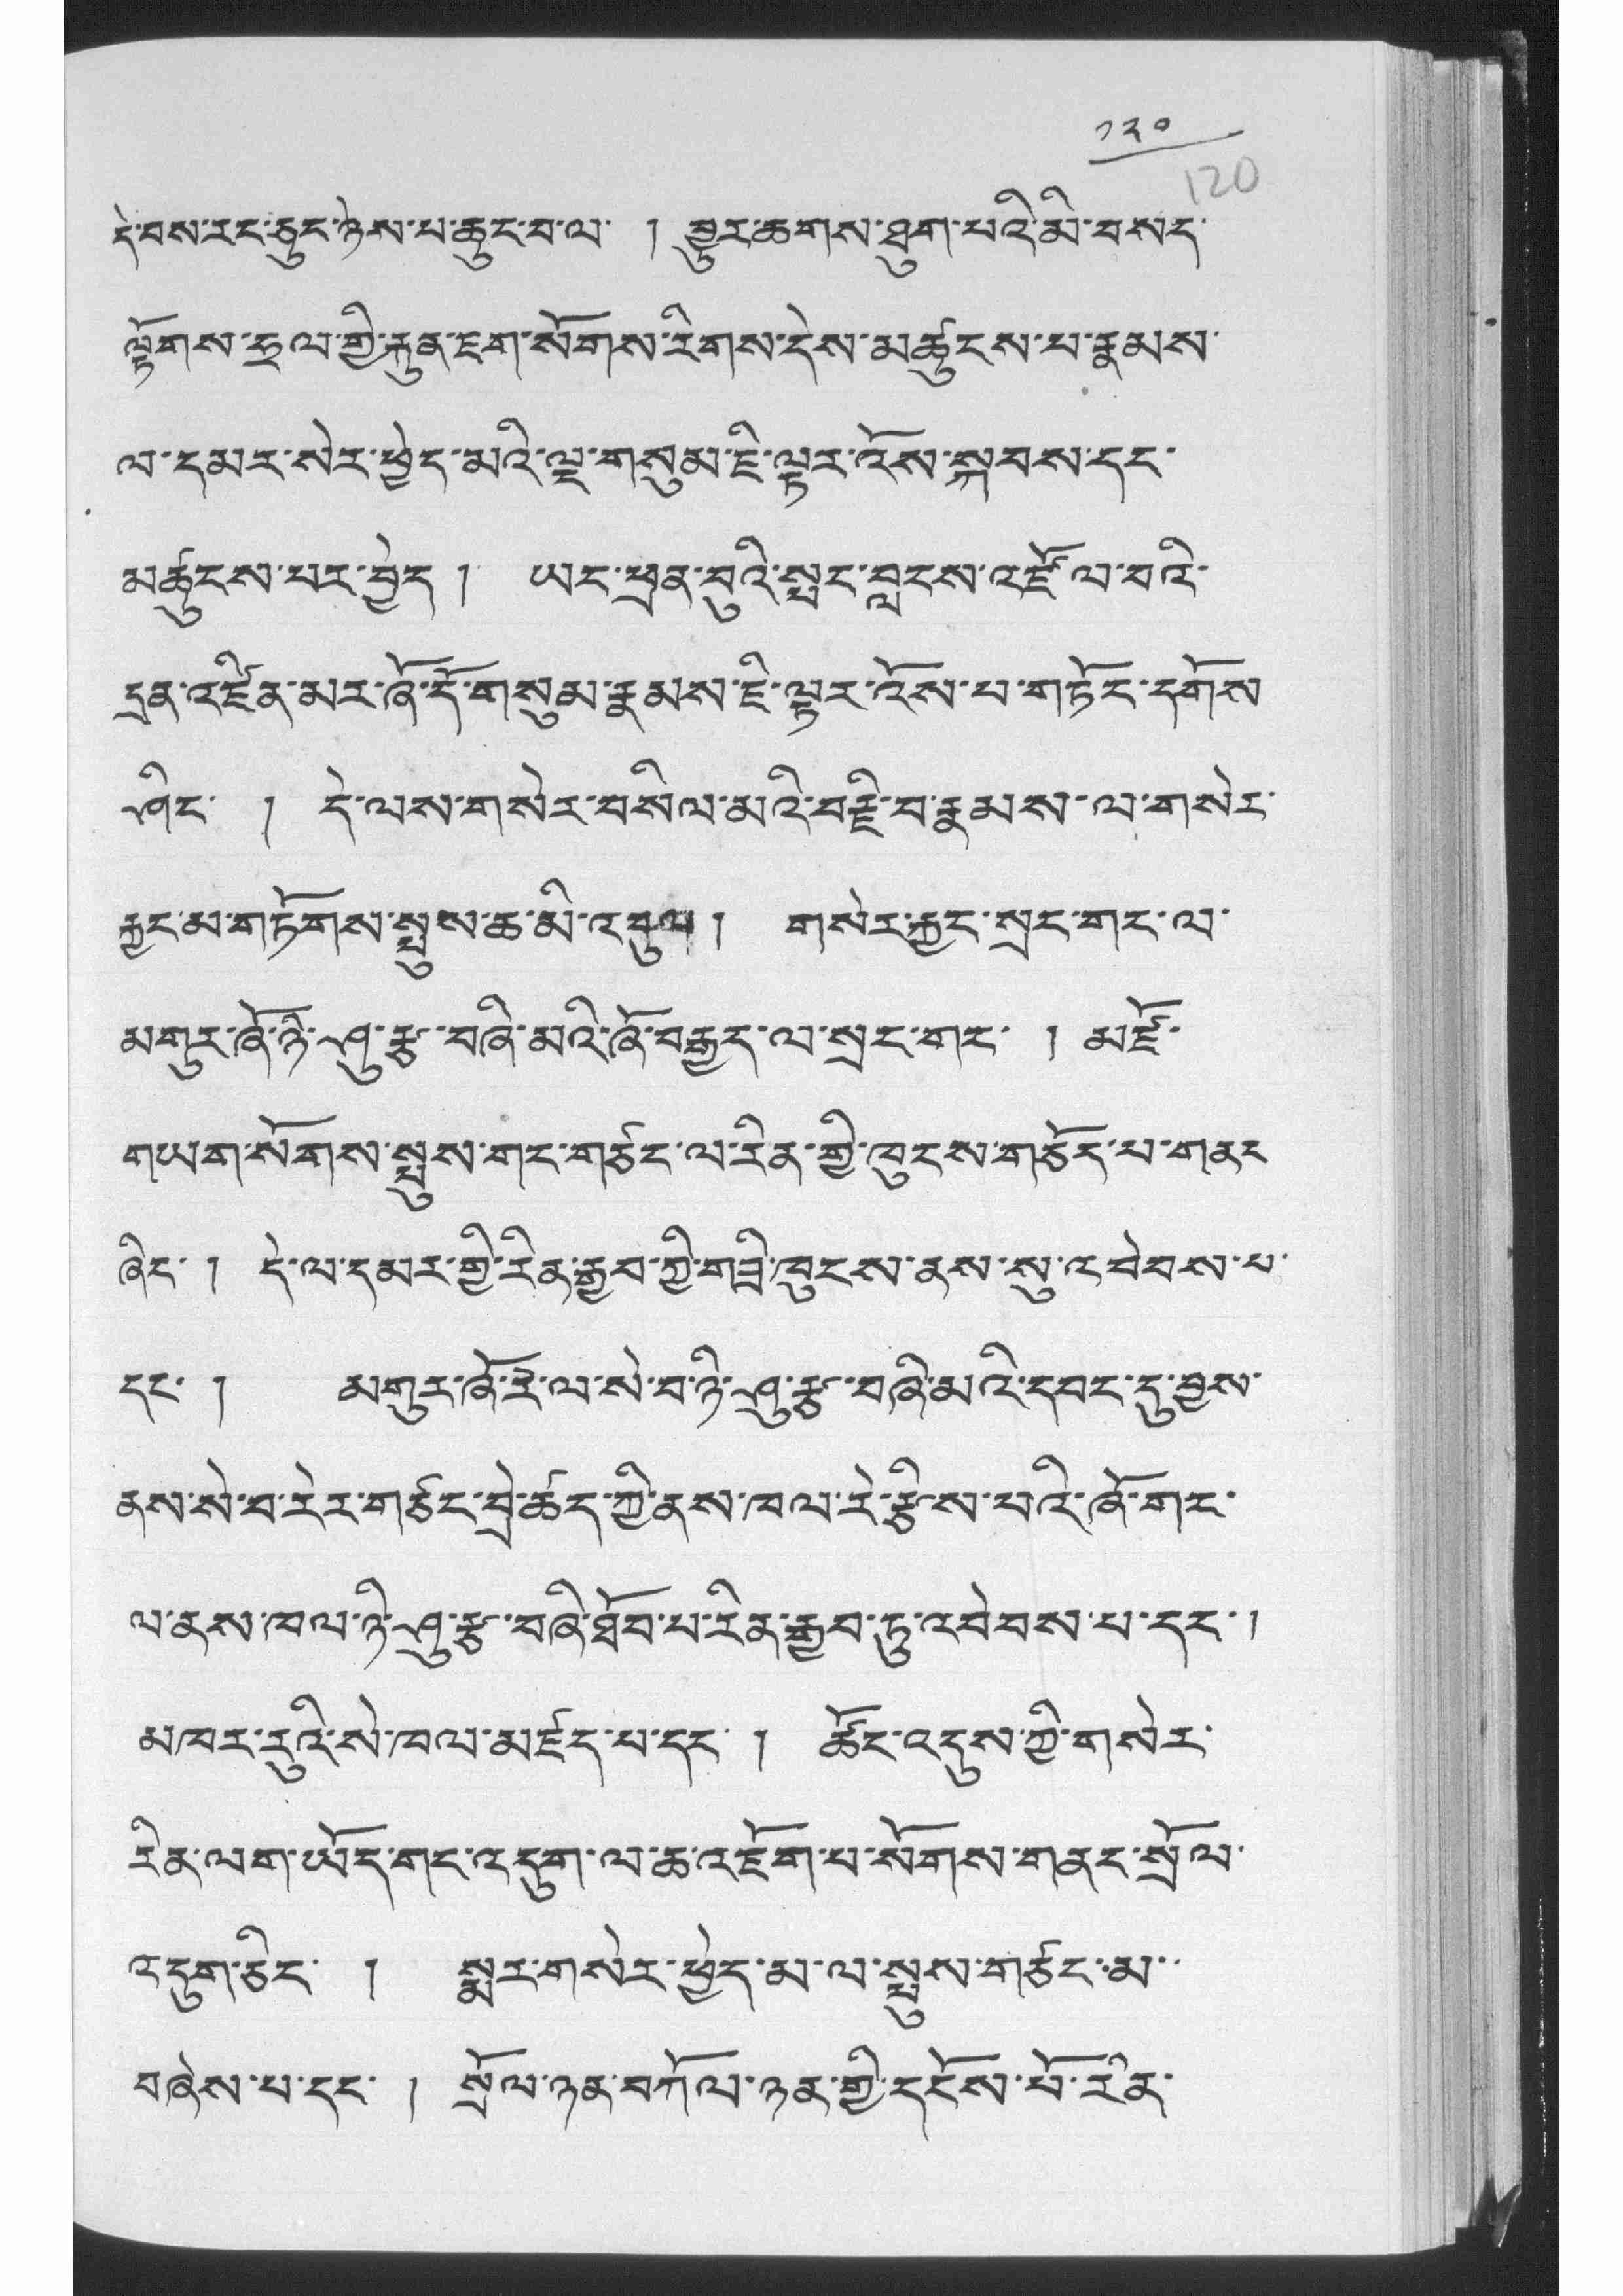 ༡༢༠
120
དེ་བས་རང་ཅུང་ཉེས་པ་ཆུང་བ་ལ་ ། ཟུར་ཆགས་ཐུག་པའི་མི་བསད་
ལྟོགས་ཧྲལ་གྱི་རྐུན་ཇག་སོགས་རིགས་དེས་མཚུངས་པ་རྣམས་
ལ་དམར་སེར་ཕྱེད་མའི་ལྔ་གསུམ་ཇི་ལྟར་འོས་སྐབས་དང་
མཚུངས་པར་བྱེད། ཡང་ཕྲན་བུའི་སྤང་བླངས་འཛོལ་བའི་
དྲན་འཛིན་མར་ཞོ་དོ་གསུམ་རྣམས་ཇི་ལྟར་འོས་པ་གཏོང་དགོས
ཤིང་ ། དེ་ལས་གསེར་བསིལ་མའི་བརྗི་བ་རྣམས་ལ་གསེར་
རྐྱང་མ་གཏོགས་སྤུས་ཆ་མི་འབུལ། གསེར་རྐྱང་སྲང་གང་ལ་
མགུར་ཞོ་ཉི་ཤུ་རྩ་བཞི་མའི་ཞོ་བརྒྱད་ལ་སྲང་གང་ ། མཛོ་
གཡག་སོགས་སྤུས་གང་གཙང་ལ་རིན་གྱི་ཁུངས་གཙོད་པ་གནང
ཞིང་ ། དེ་ལ་དམར་གྱི་རིན་རྒྱབ་ཀྱི་གཟི་ཁུངས་ནས་སུ་འབེབས་པ་
དང་ ། མགུར་ཞོ་རེ་ལ་སེ་བ་ཉི་ཤུ་རྩ་བཞི་མའི་དབང་དུ་བྱས་
ནས་སེ་བ་རེར་གཙང་བྲེ་ཚད་ཀྱི་ནས་ཁལ་རེ་རྩིས་པའི་ཞོ་གང་
ལ་ནས་ཁལ་ཉི་ཤུ་རྩ་བཞི་ཐོབ་པ་རིན་རྒྱབ་ཏུ་འབེབས་པ་དང་།
མཁར་རུའི་སེ་ཁལ་མཛད་པ་དང་ ། ཚོང་འདུས་ཀྱི་གསེར་
རིན་ལག་ཡོད་གང་འདུག་ལ་ཆ་འཇོག་པ་སོགས་གནང་སྲོལ་
འདུག་ཅིང་ ། སྨར་གསེར་ཕྱེད་མ་ལ་སྤུས་གཙང་མ་
བཞེས་པ་དང་ ། སྲོལ་ཉན་བཀོལ་ཉན་གྱི་དངོས་པོ་རིན་